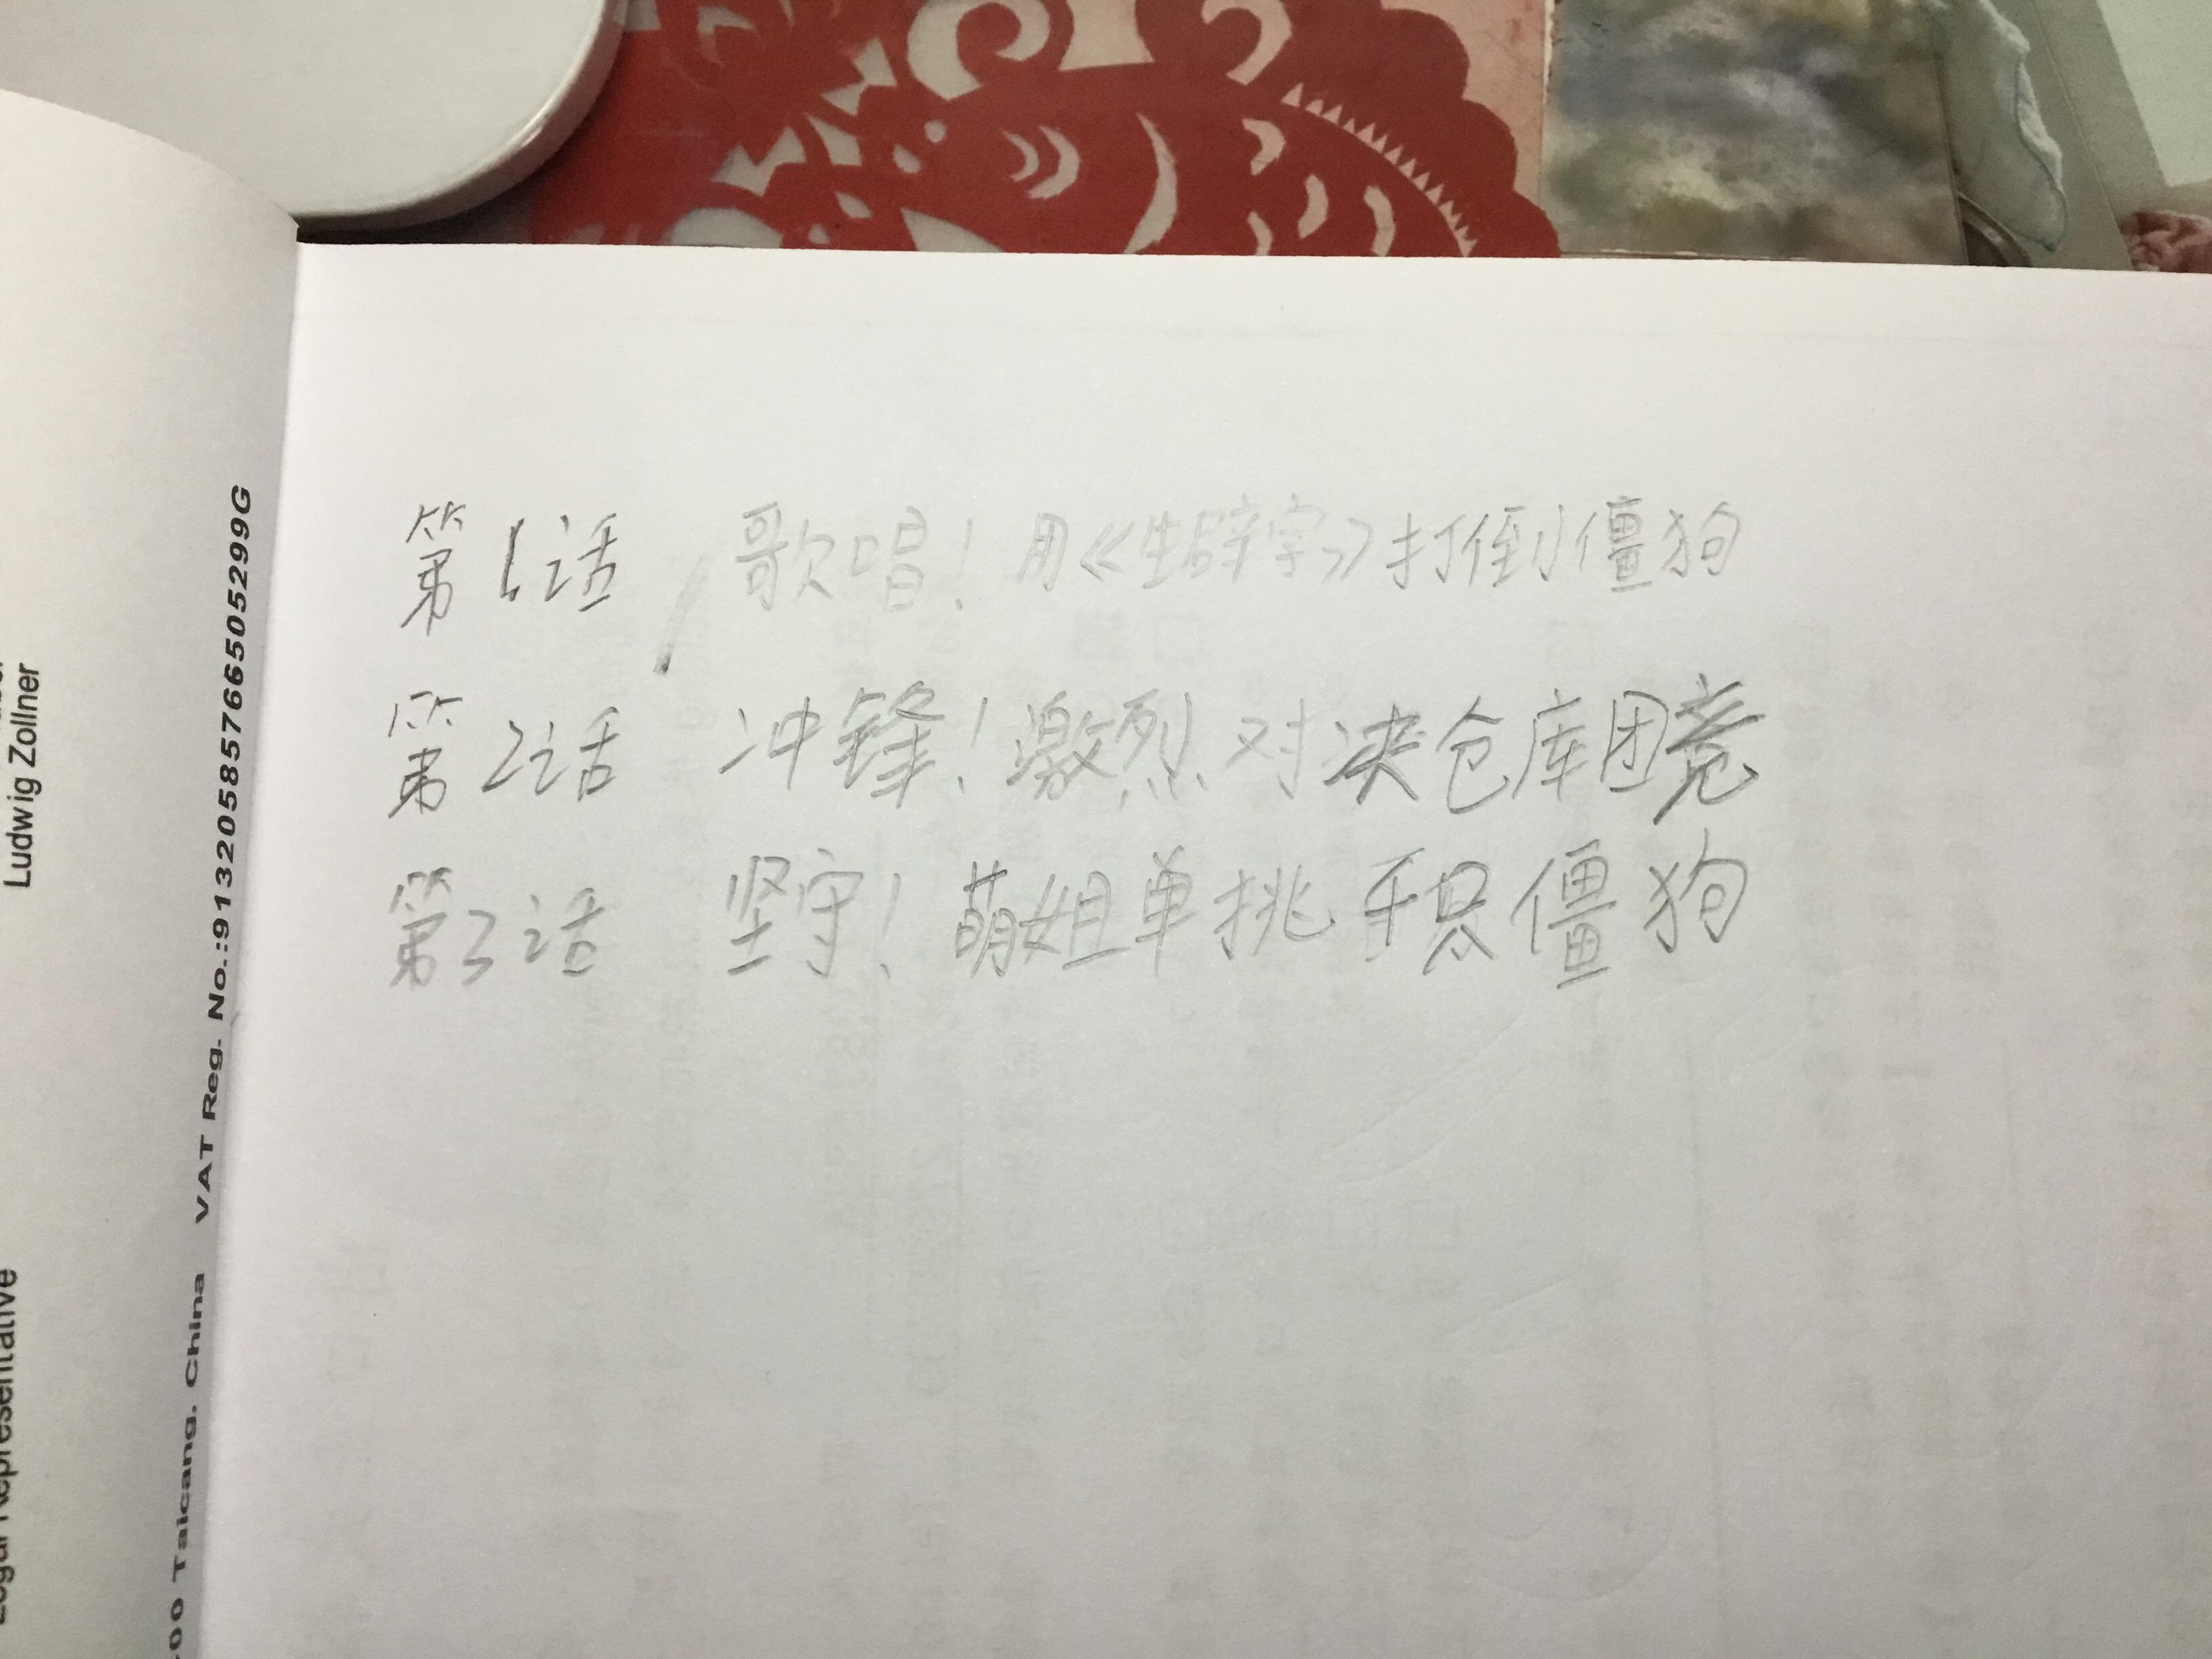 第1话 歌唱！用《生辟字》打倒小僵狗
第2话 冲锋！激烈对决仓库团竞
第3话 坚守！萌姐单挑千只僵狗
Ludwig Zollner
Legal Representative
00 Taicang. China VAT Reg. No.:91320585766505299G